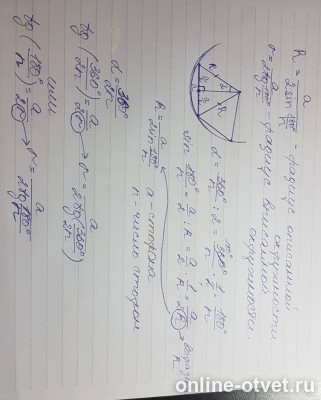 R = a / 2 sin 180°/n - радиус описанной
окружности
r = a / 2 tg 180°/n - радиус вписанной
окружности.
R
R
a/2
a/2
α = 360°/n : 2 = 360°/n · 1/2 = 180°/n
sin 180°/n = a/2 : R = a/2 · 1/R = a/2R
R = a / 2 sin 180°/n
a - сторона
n - число сторон
α = 360°/2n
tg (360°/2n) = a/2r → r = a / 2 tg (360°/2n)
или
tg (180°/n) = a/2r → r = a / 2 tg 180°/n
online-otvet.ru